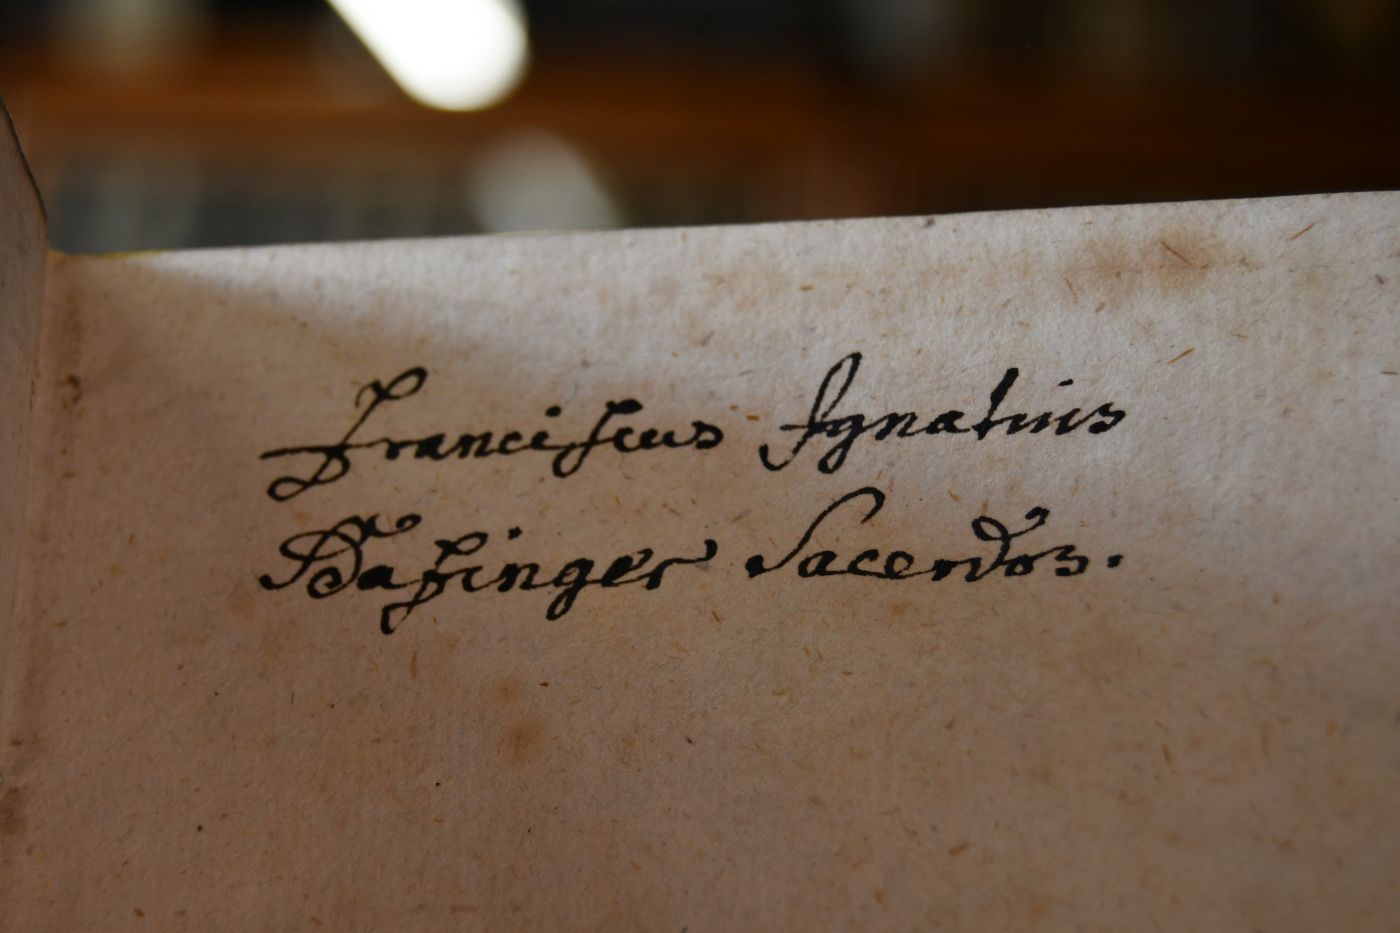 Franciscus Ignatius
Basinger Sacerdos.